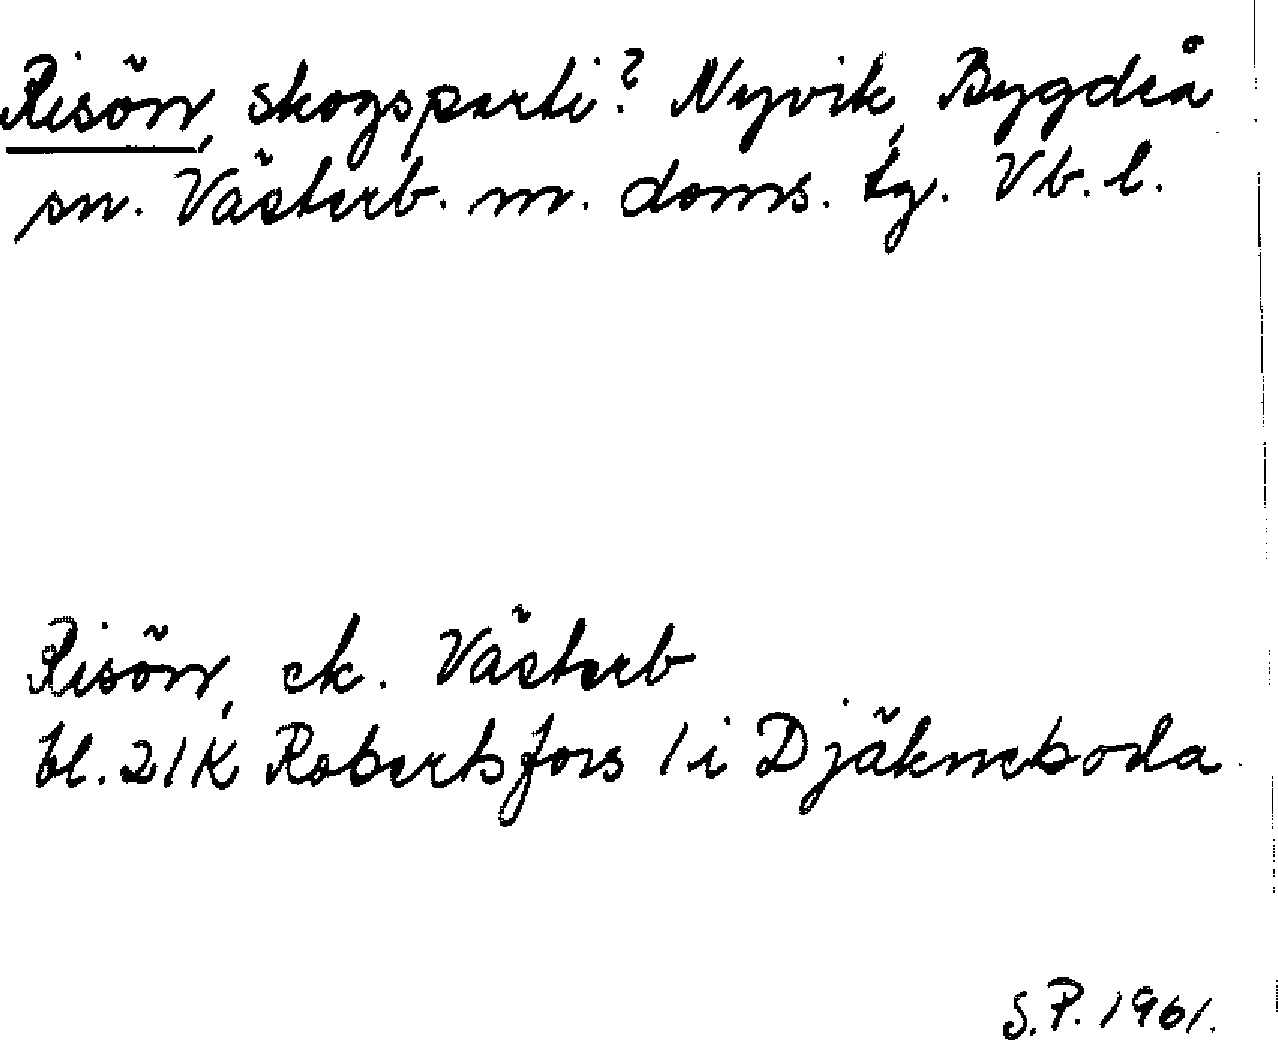 Risön, skogsparti? Nyvik, Bygdeå
sn. Västerb. m. doms. tg. Vb. l.
Risön, ek. Västerb
bl. 21K Robertsfors 1i Djäkneboda
S.P. 1961.